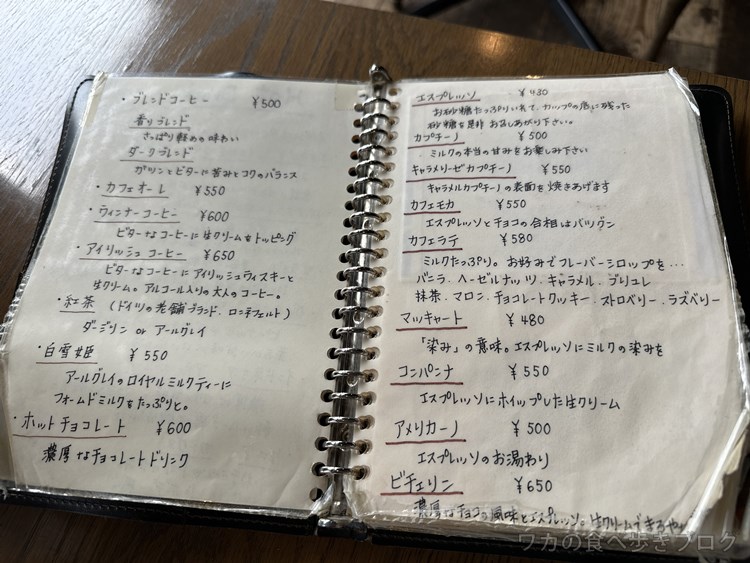 ・ブレンドコーヒー ￥500
香りブレンド
さっぱり軽めの味わい
ダークブレンド
ガツンとビターに苦みとコクのバランス
・カフェオーレ ￥550
・ウィンナーコーヒー ￥600
ビターなコーヒーに生クリームをトッピング
・アイリッシュコーヒー ￥650
ビターなコーヒーにアイリッシュウィスキーと
生クリーム。アルコール入りの大人のコーヒー。
・紅茶 (ドイツの老舗ブランド、ロンネフェルト)
ダージリン or アールグレイ
・白雪姫 ￥550
アールグレイのロイヤルミルクティーに
フォームドミルクをたっぷりと。
・ホットチョコレート ￥600
濃厚なチョコレートドリンク
エスプレッソ ￥430
お砂糖たっぷりいれて、カップの底に残った
砂糖を是非お召しあがり下さい。
カプチーノ ￥500
ミルクの本当の甘みをお楽しみ下さい
キャラメリーゼカプチーノ ￥550
キャラメルカプチーノの表面を焼きあげます
カフェモカ ￥550
エスプレッソとチョコの合相はバツグン
カフェラテ ￥580
ミルクたっぷり。お好みでフレーバーシロップを…
バニラ、ヘーゼルナッツ、キャラメル、ブリュレ
抹茶、マロン、チョコレートクッキー、ストロベリー、ラズベリー
マッキャート ￥480
「染み」の意味。エスプレッソにミルクの染みを
コンパンナ ￥550
エスプレッソにホイップした生クリーム
アメリカーノ ￥500
エスプレッソのお湯わり
ビチェリン ￥650
濃厚なチョコの風味とエスプレッソ。生クリームで
ワカの食べ歩きブログ